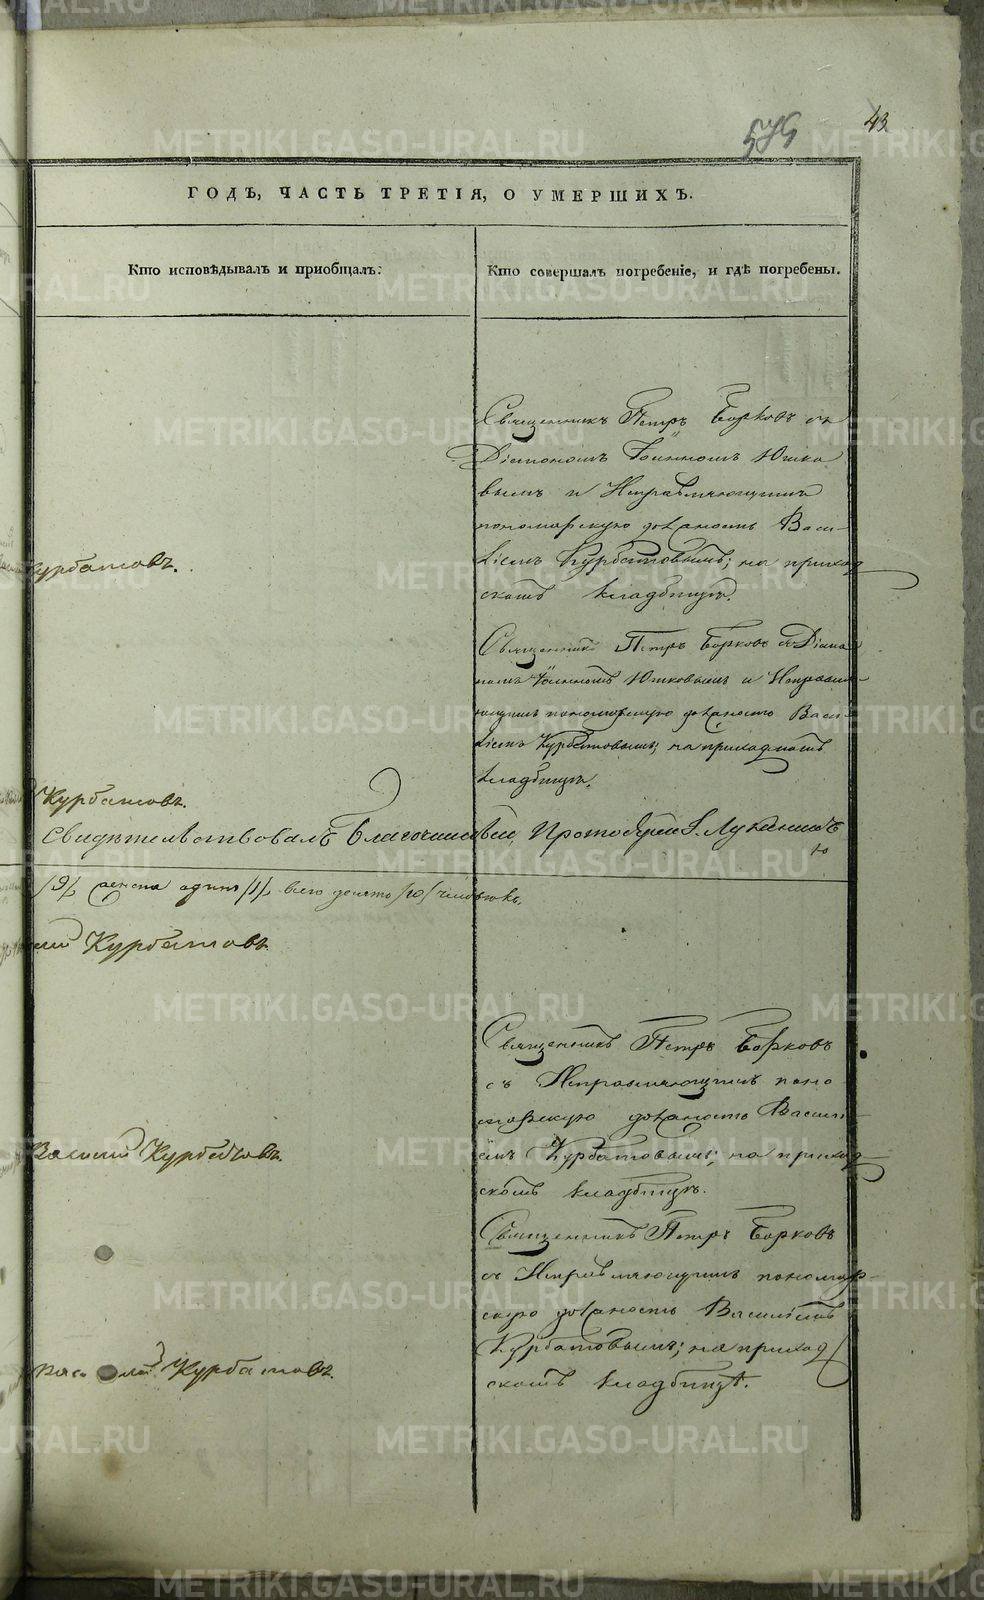 43
ГОДЪ, ЧАСТЬ ТРЕТІЯ, О УМЕРШИХЪ.
Кто исповѣдывалъ и приобщалъ:
Кто совершалъ погребеніе, и гдѣ погребены.
Священникъ Петръ Борковъ съ
Діакономъ Іоанномъ Юшко
вымъ и Исправляющимъ
пономарскую должность Васи-
ліемъ Курбатовымъ; на приход
скомъ кладбищѣ.
Курбатовъ.
Священникъ Петръ Борковъ съ Діако
номъ Іоанномъ Юшковымъ и Исправля-
ющимъ пономарскую должность Васи-
ліемъ Курбатовымъ; на приходскомъ
кладбищѣ.
Курбатовъ.
Свидѣтельствовалъ Благочинный, Протоіерей
/9/ женска одинъ /1/ всего десять /10/ человѣкъ.
Курбатовъ
Священникъ Петръ Борковъ
съ Исправляющимъ поно
марскую должность Васили-
емъ Курбатовымъ; на приход
скомъ кладбищѣ.
Василій Курбатовъ.
Священникъ Петръ Борковъ
съ Исправляющимъ пономар-
скую должность Василіемъ
Курбатовымъ; на приход
скомъ кладбищѣ.
Курбатовъ.
METRIKI.GASO-URAL.RU